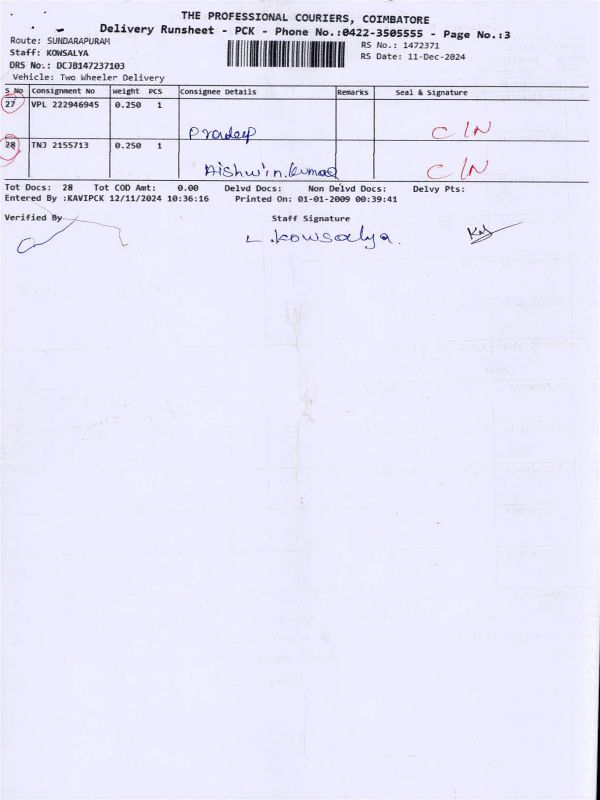 THE PROFESSIONAL COURIERS, COIMBATORE
Delivery Runsheet - PCK - Phone No.:0422-3505555 - Page No.:3
Route: SUNDARAPURAM
RS No.: 1472371
Staff: KOWSALYA
RS Date: 11-Dec-2024
DRS No.: DCJB147237103
Vehicle: Two Wheeler Delivery
S No Consignment No Weight PCS Consignee Details Remarks Seal & Signature
27 VPL 222946945 0.250 1
Pradeep C/N
28 TNJ 2155713 0.250 1
Aishwin.kumar C/N
Tot Docs: 28 Tot COD Amt: 0.00 Delvd Docs: Non Delvd Docs: Delvy Pts:
Entered By :KAVIPCK 12/11/2024 10:36:16 Printed On: 01-01-2009 00:39:41
Verified By Staff Signature
L.kowsalya.